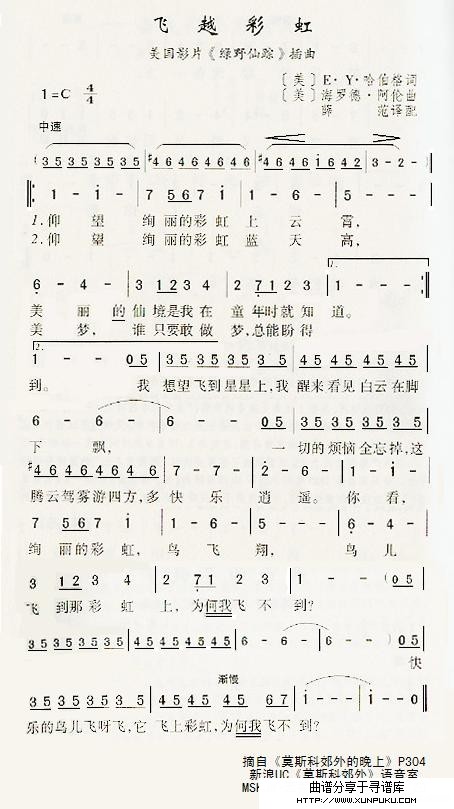 飞越彩虹
美国影片《绿野仙踪》插曲
〔美〕E·Y·哈伯格词
1=C 4/4 〔美〕海罗德·阿伦曲
薛 范译配
中速
( 3 5 3 5 3 5 3 5 | #4 6 4 6 4 6 4 6 | #4 6 4 6 1 6 4 6 | 3 - 2 - )
‖: 1 - 1 - | 7 5 6 7 1 | 1 - 6 - | 5 - - - |
1.仰 望 绚 丽的彩 虹 上 云 霄，
2.仰 望 绚 丽的彩 虹 蓝 天 高，
1.
6 - 4 - | 3 1 2 3 4 | 2 7 1 2 3 | 1 - - - :‖
美 丽 的仙 境是我 在 童 年时就 知 道。
美 梦， 谁 只要敢 做 梦，总能盼 得
2.
1 - - 0 5 | 3 5 3 5 3 5 3 5 | 3 5 3 5 3 5 3 5 |
到。 我 想望飞到星星上，我 醒来看见白云在脚
6 - 6 - | 6 - - 0 5 | 3 5 3 5 3 5 3 5 |
下 飘， 一 切的烦恼全忘掉，这
#4 6 4 6 4 6 4 6 | 7 - 7 - | 2 - 6 - | 1 - 1 - |
腾云驾雾游四方，多 快 乐 逍 遥。 你 看，
7 5 6 7 1 | 1 - 6 - | 5 - - - | 6 - 4 - |
绚 丽的彩 虹， 鸟 飞 翔， 鸟 儿
3 1 2 3 4 | 2 7 1 2 3 | 1 - - - | ( 0 5 |
飞 到那彩 虹 上，为何我飞 不 到？
3 5 3 5 3 5 3 5 | #4 6 4 6 4 6 4 6 | 6 - 6 - | 6 - - ) 0 5 |
快
渐慢
3 5 3 5 3 5 3 5 | 4 5 4 5 4 5 6 7 | 1 - 1 - | 1 0 0 0 ‖
乐的鸟儿飞呀飞，它 飞上彩虹，为何我飞 不 到？
摘自《莫斯科郊外的晚上》P304
新浪UC《莫斯科郊外》语音室
曲谱分享于寻谱库
WWW.XUNPUKU.COM